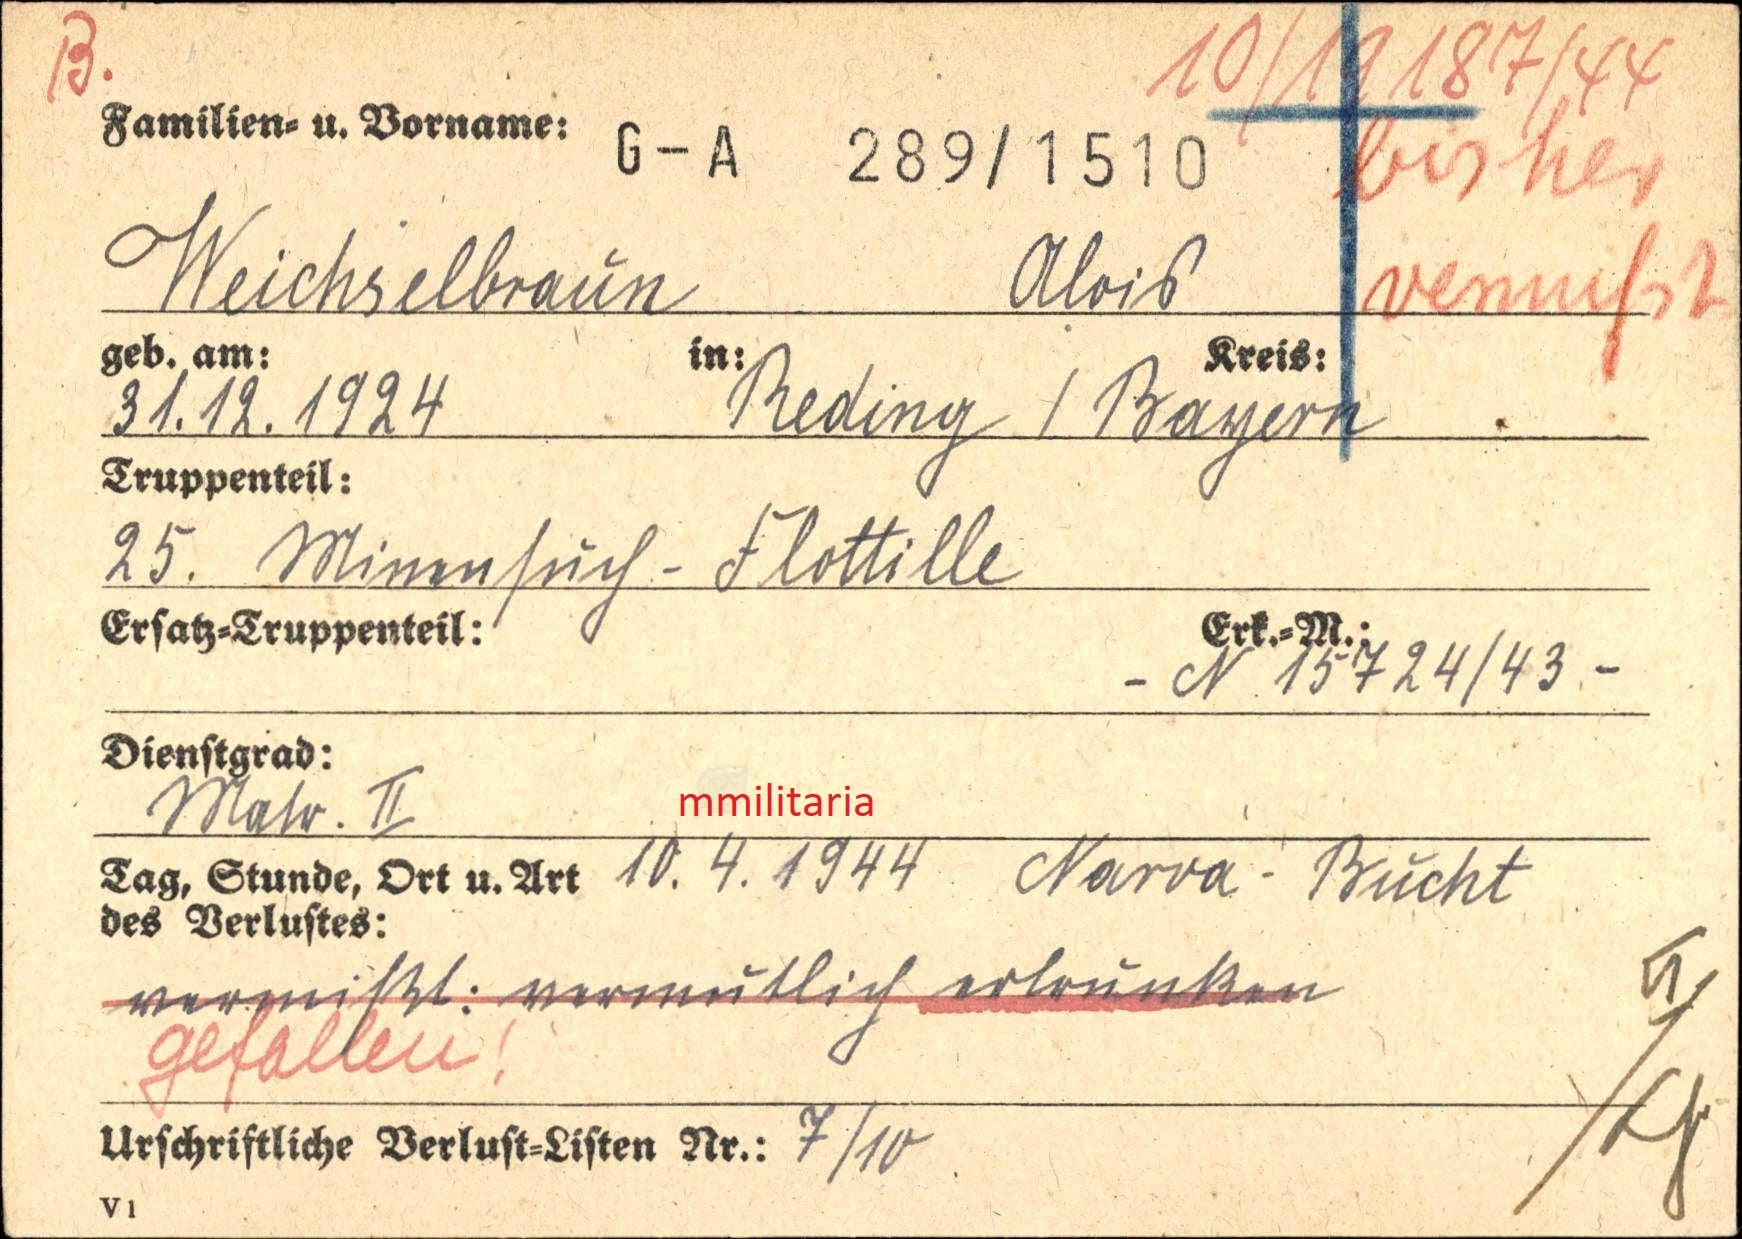 B.
10/19187/44
Familien- u. Vorname: G-A 289/1510
bisher
Weichselbraun Alois
vermißt
geb. am: in: Kreis:
31.12.1924 Reding / Bayern
Truppenteil:
25. Minensuch-Flottille
Ersatz-Truppenteil: Erk.-M.:
- N 15724/43 -
Dienstgrad:
Matr. II
mmilitaria
Tag, Stunde, Ort u. Art 10.4.1944 Narva-Bucht
des Verlustes:
vermißt: vermutlich ertrunken
gefallen!
Urschriftliche Verlust-Listen Nr.: 7/10
V 1